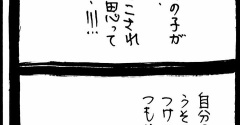 の子が
こされ
思って
…!!!!
自分
うそ
つけ
つも